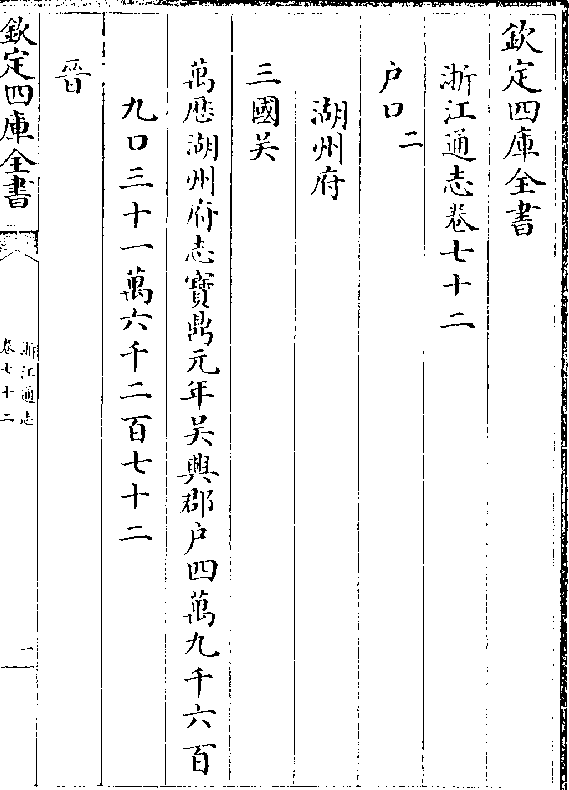 欽定四庫全書
浙江通志卷七十二
户口二
湖州府
三國吴
萬厯湖州府志寶鼎元年吴興郡户四萬九千六百
九口三十一萬六千二百七十二
晉
欽定四庫全書
浙江通志
卷七十二
一